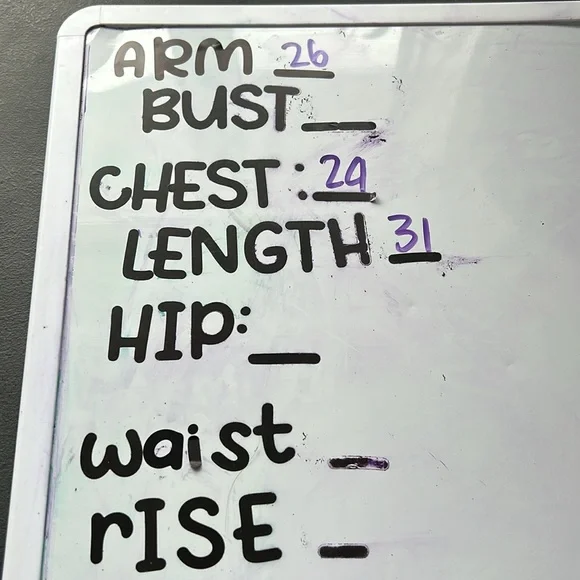 ARM 26
BUST__
CHEST: 24
LENGTH 31
HIP:__
waist _
rISE _